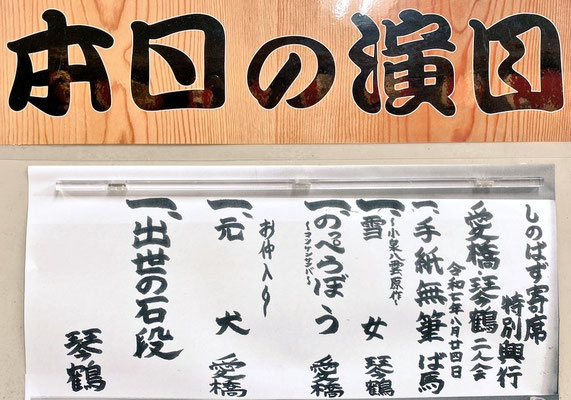 本日の演目
しのはず寄席
特別興行
愛橋・琴鶴 二人会
令和七年八月廿四日
一、手紙無筆 ば馬
〜小泉八雲原作〜
一、雪女 琴鶴
一、のっぺらぼう 愛橋
〜マツケンサンバ〜
お仲入り
一、元犬 愛橋
一、出世の石段
琴鶴